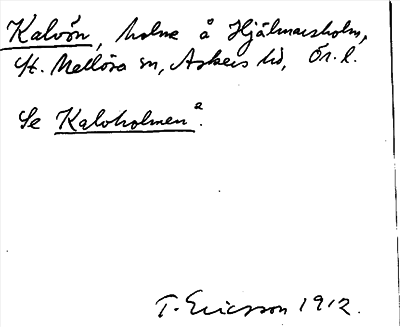 Kalvön, holme å Hjälmarsholm,
St. Mellösa sn, Askers hd, Ör. l.
Se Kalvholmen a.
T. Ericsson 1912.